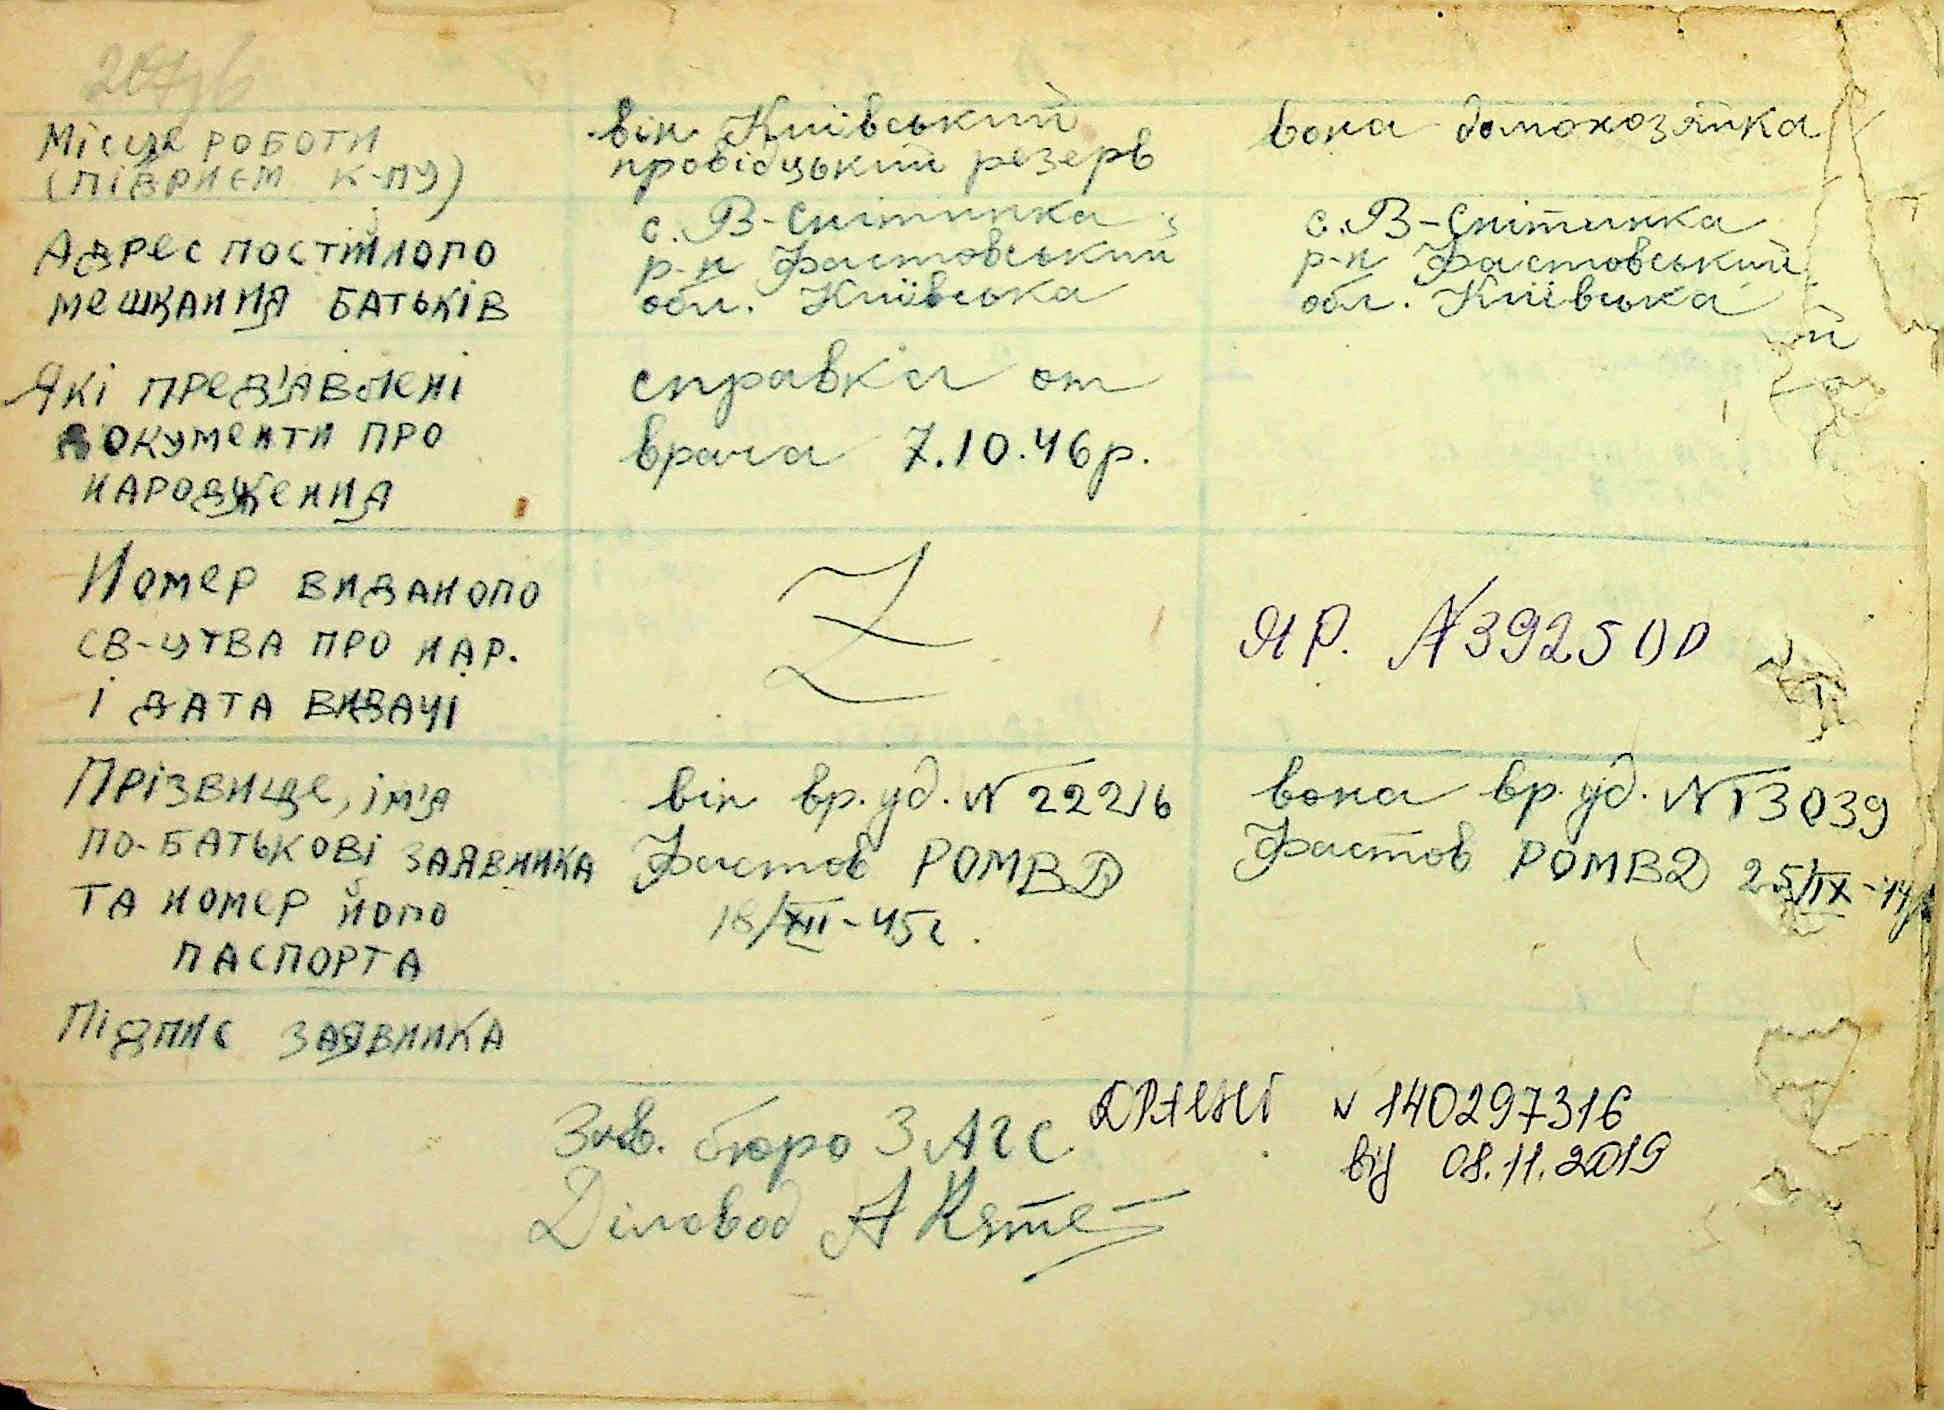 Місце роботи
(підприєм к-пу)
він Київський
провідцький резерв
вона домохозяйка
Адрес постійного
мешкання батьків
с. В-Снітинка
р-н Фастовський
обл. Київська
с. В-Снітинка
р-н Фастовський
обл. Київська
Які пред'явлені
документи про
народження
справка от
врача 7.10.46р.
Номер виданого
св-цтва про нар.
і дата видачі
Z
ЯР. №392500
Прізвище, ім'я
по-батькові заявника
та номер його
паспорта
він вр.уд. № 22216
Фастов РОМВД
18/XII-45г.
вона вр.уд. №13039
Фастов РОМВД 25/IX-44
Підпис заявника
Зав. бюро ЗАГС
Діловод А
ДРАЦСГ № 140297316
від 08.11.2019